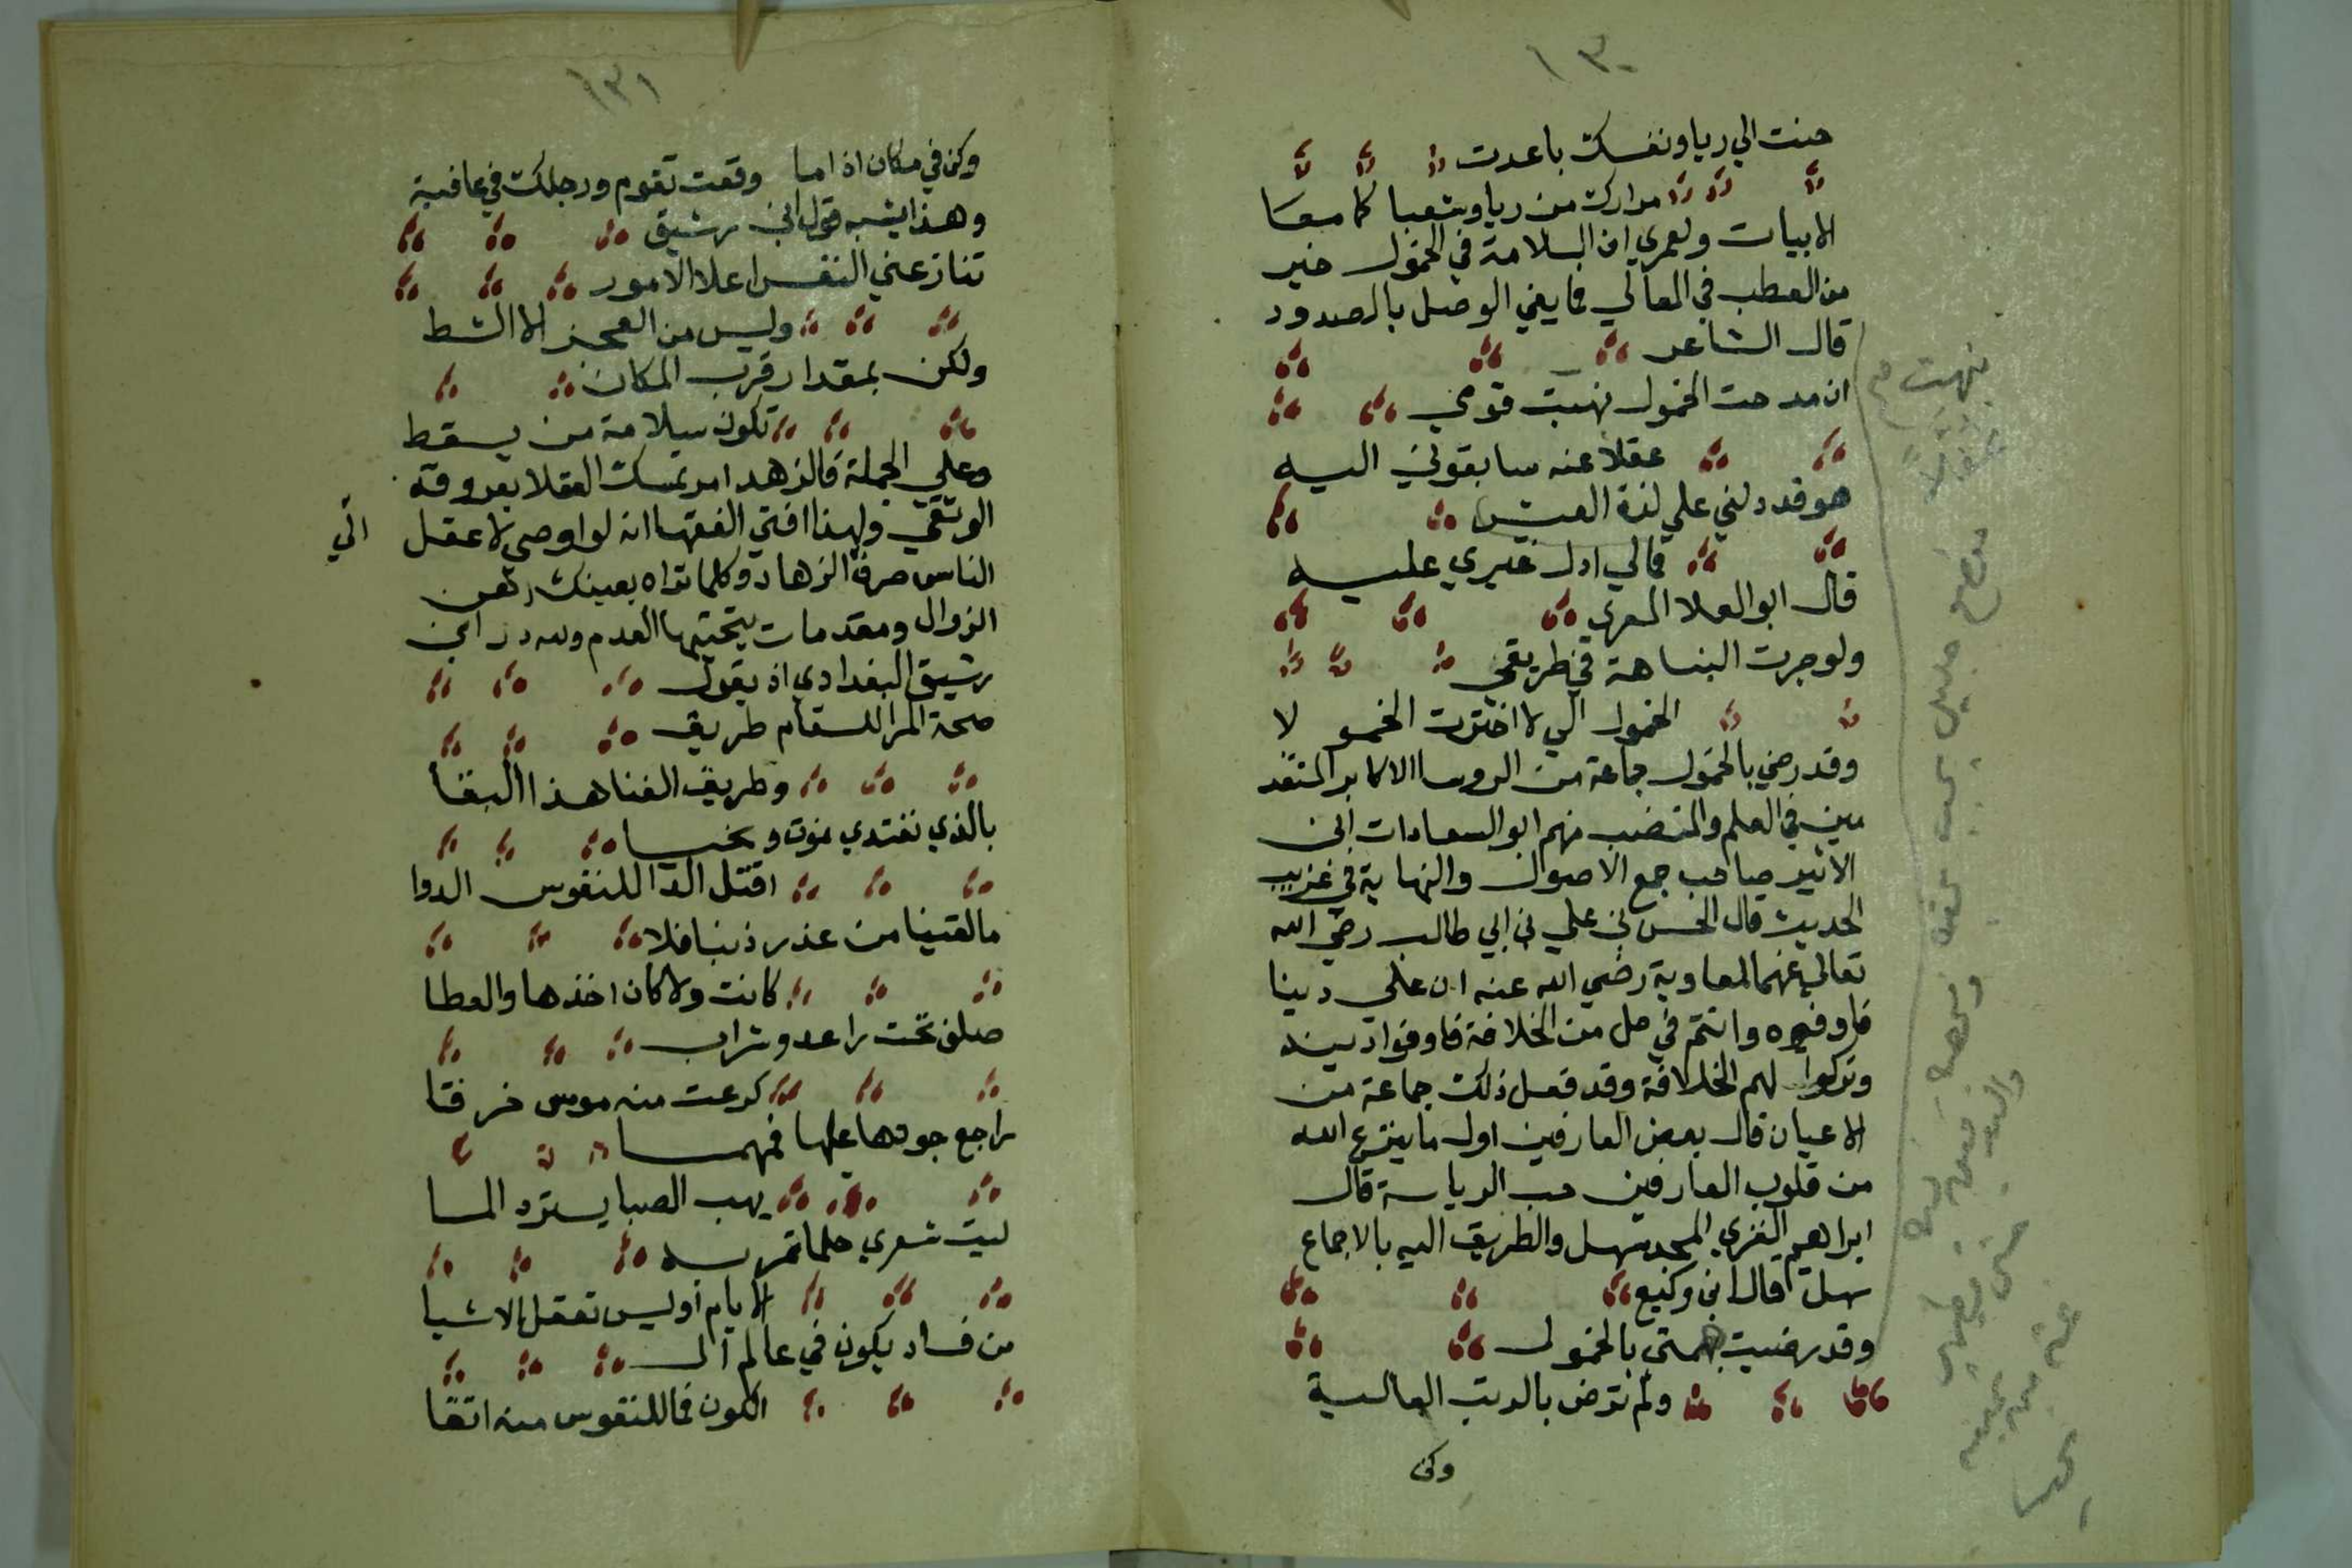 ١٣٠
حنت الي ريا ونفسك باعدت
مزارك من ريا وشعبا كما معا
الابيات ولعمري ان السلامة في الخمول خير
من العطب في المعالي فما يفي الوصل بالصدود
قال الشاعر
ان مدحت الخمول نهبت قومي
عقلا عنه سابقوني اليه
هو قد دلني علي لذة العيش
فمالي ادل غيري عليه
قال ابو العلا المعري
ولو جرت النباهة في طريقي
الخمول الي لاخترت الخمو لا
وقد رضي بالخمول جماعة من الروسا الاكابر المتقد
مين في العلم والمنصب منهم ابو السعادات ابن
الاثير صاحب جمع الاصول والنهاية في غريب
الحديث قال الحسن بن علي بن ابي طالب رضي الله
تعالي عنهما لمعاوية رضي الله عنه ان علي دينا
فاوفوه وانتم في حل من الخلافة فاوفوا دينه
وتركوا لهم الخلافة وقد فعل ذلك جماعة من
الاعيان قال بعض العارفين اول ما ينزع الله
من قلوب العارفين حب الرياسة قال
ابراهيم الغزي المجد سهل والطريق اليه بالاجماع
سهل قال ابن وكيع
وقد رضيت همتي بالخمول
ولم ترض بالرتب العالية
وكن
نبهت
١٣١
وكن في مكان اذا ما وقعت تقوم ورجلك في عافية
وهذا يشبه قول ابن رشيق
تنازعني النفس اعلا الامور
وليس من العجز الا انشط
ولكن بمقدار قرب المكان
تكون سلامة من يسقط
وعلي الجملة فالزهد امر تمسك العقلا بعروقه
الوثقي ولهذا افتي الفقها انه لو اوصي لاعقل الي
الناس صرف الزهاد وكلما تراه بعينك رهن
الزوال ومقدمات يختمها العدم ولله در ابن
رشيق البغدادي اذ يقول
صحة المرا للسقام طريق
وطريق الفنا هذا البقا
بالذي نغتدي نموت ونحيا
اقتل الدا للنفوس الدوا
ما لقينا من غدر دنيا فلا
كانت ولا كان اخذها والعطا
صلف تحت راعد وشراب
كرعت منه مومس خرقا
راجع جودها عليها فمهما
يهب الصبا يسترد المسا
ليت شعري حلما تمر به
الايام او ليس تعقل الاشيا
من فساد يكون في عالم ال
الكون فما للنفوس منه اتقا